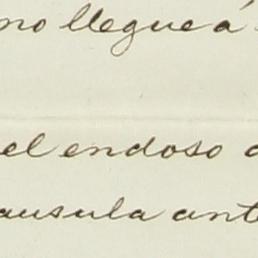 no llegue á
el endoso
ausula ant